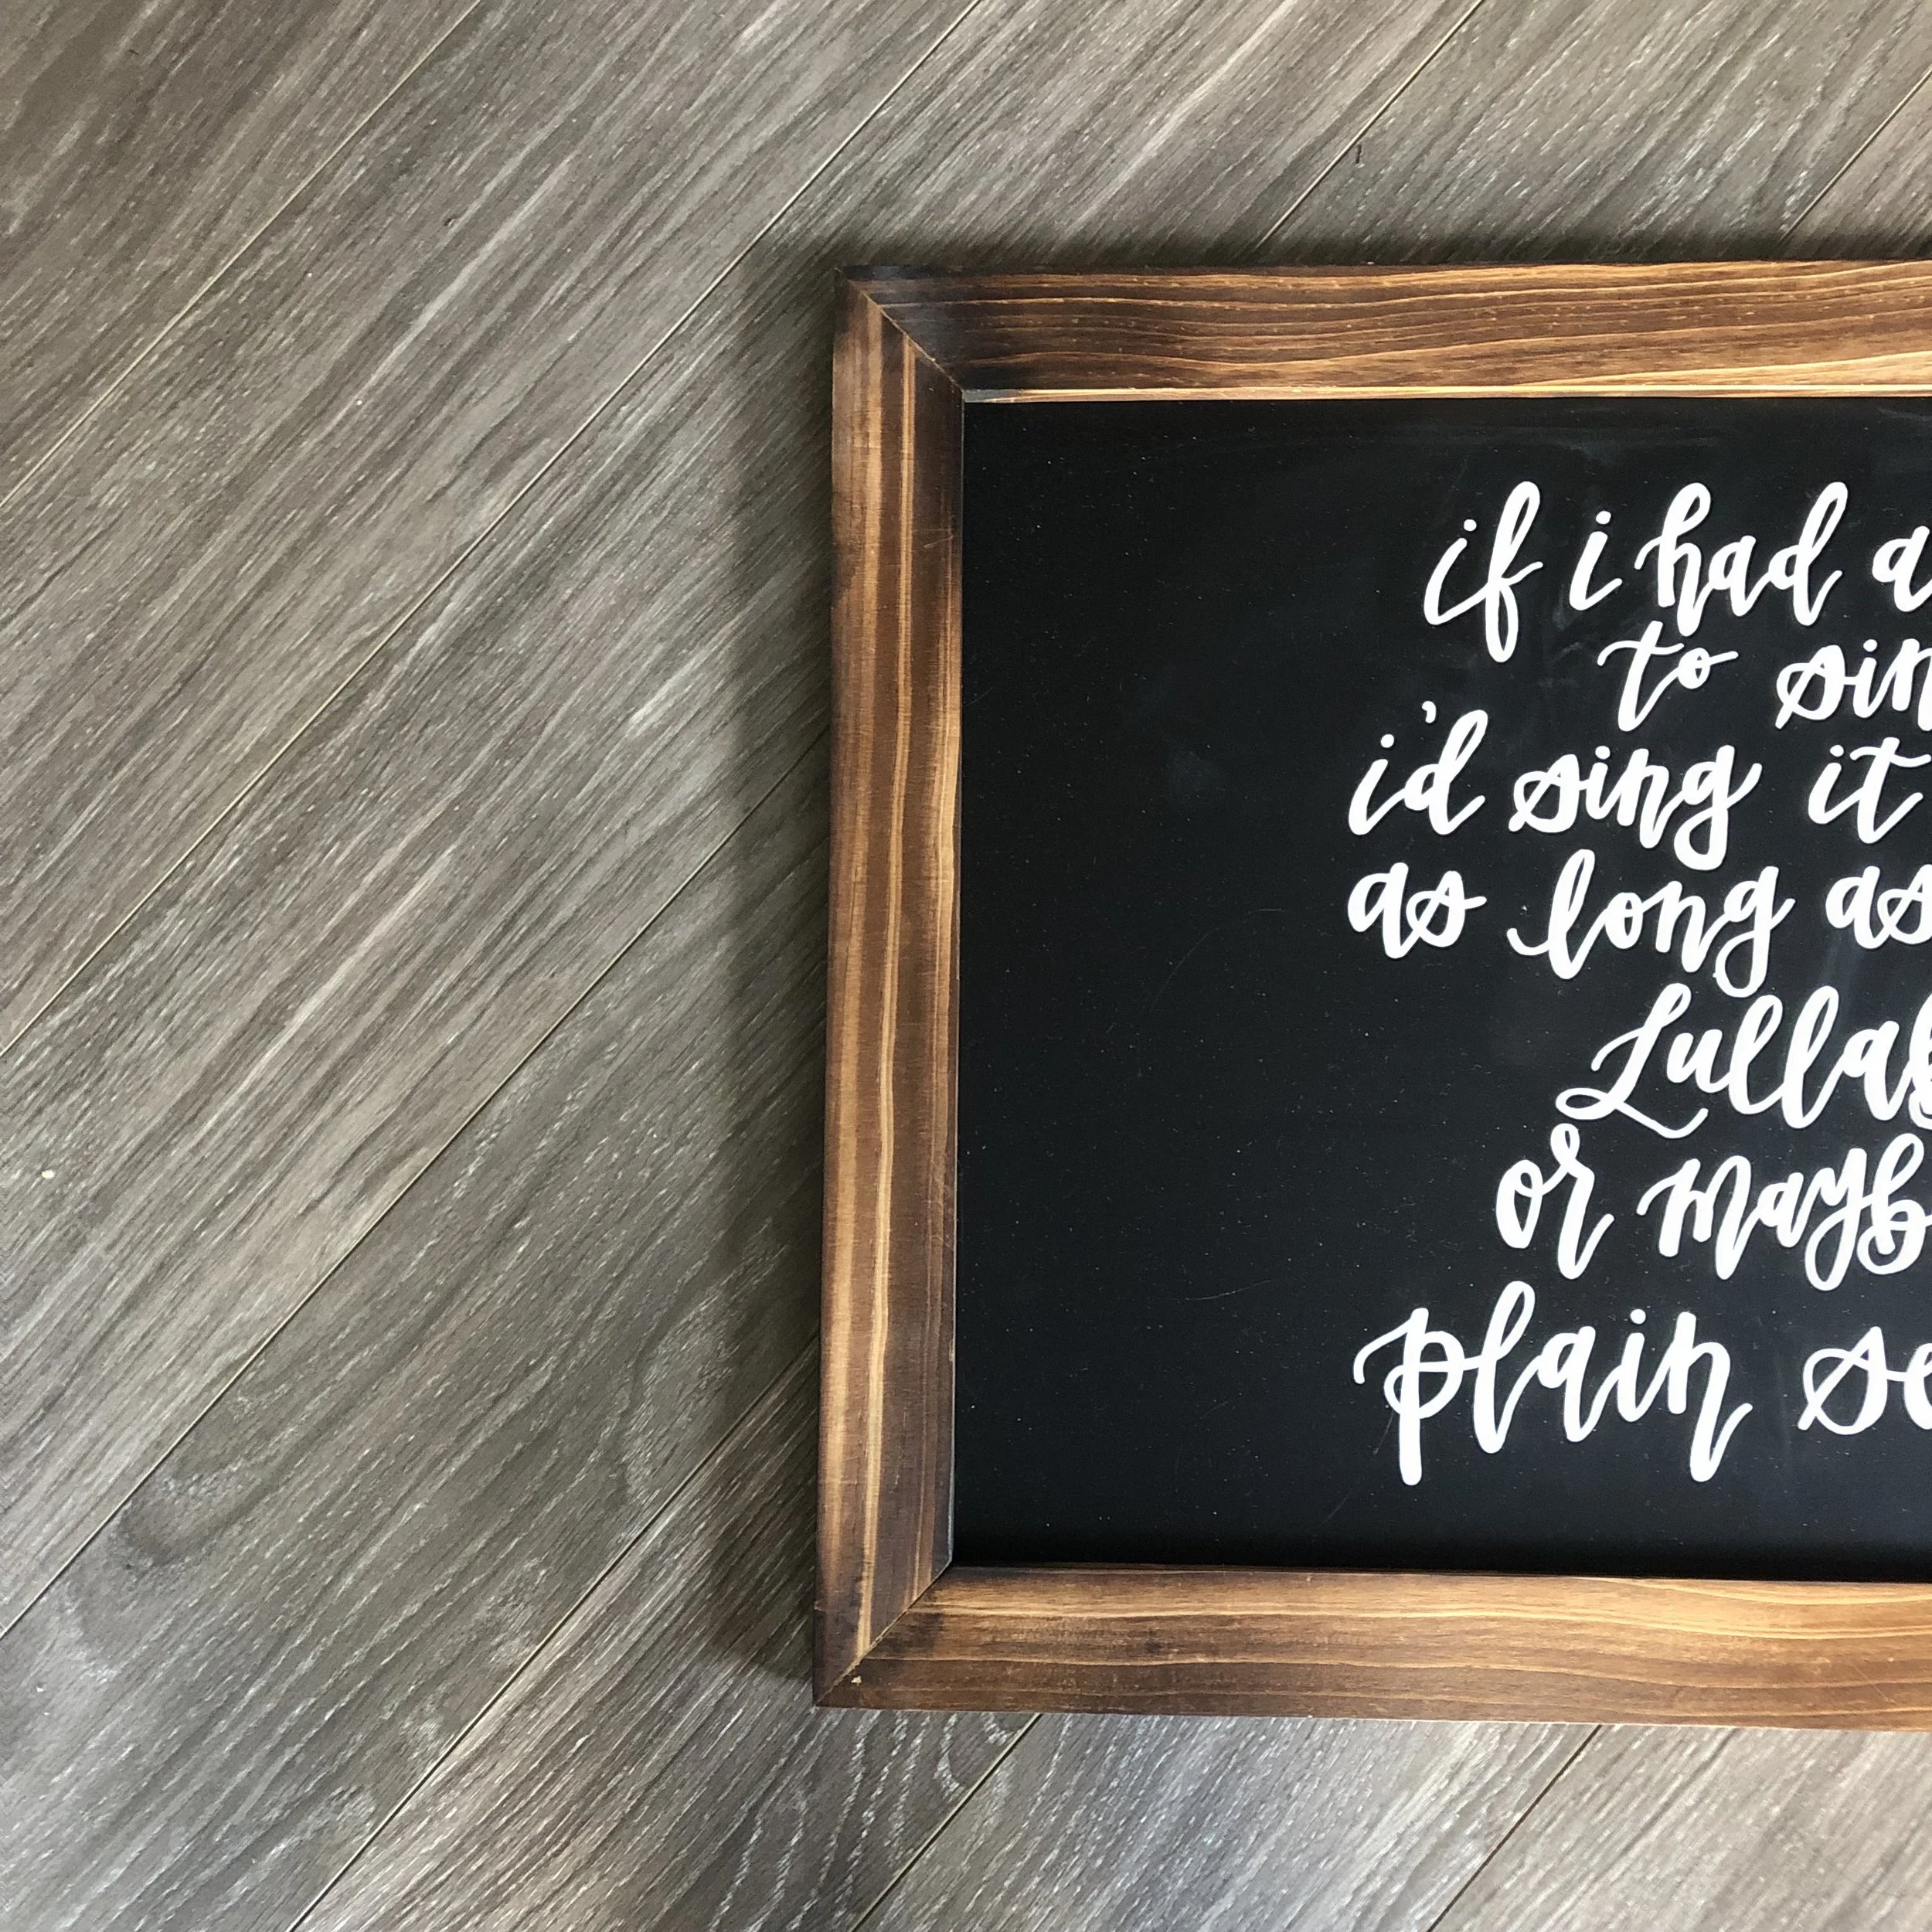 if i had a
to sin
i'd sing it
as long as
Lullab
or mayb
plain se